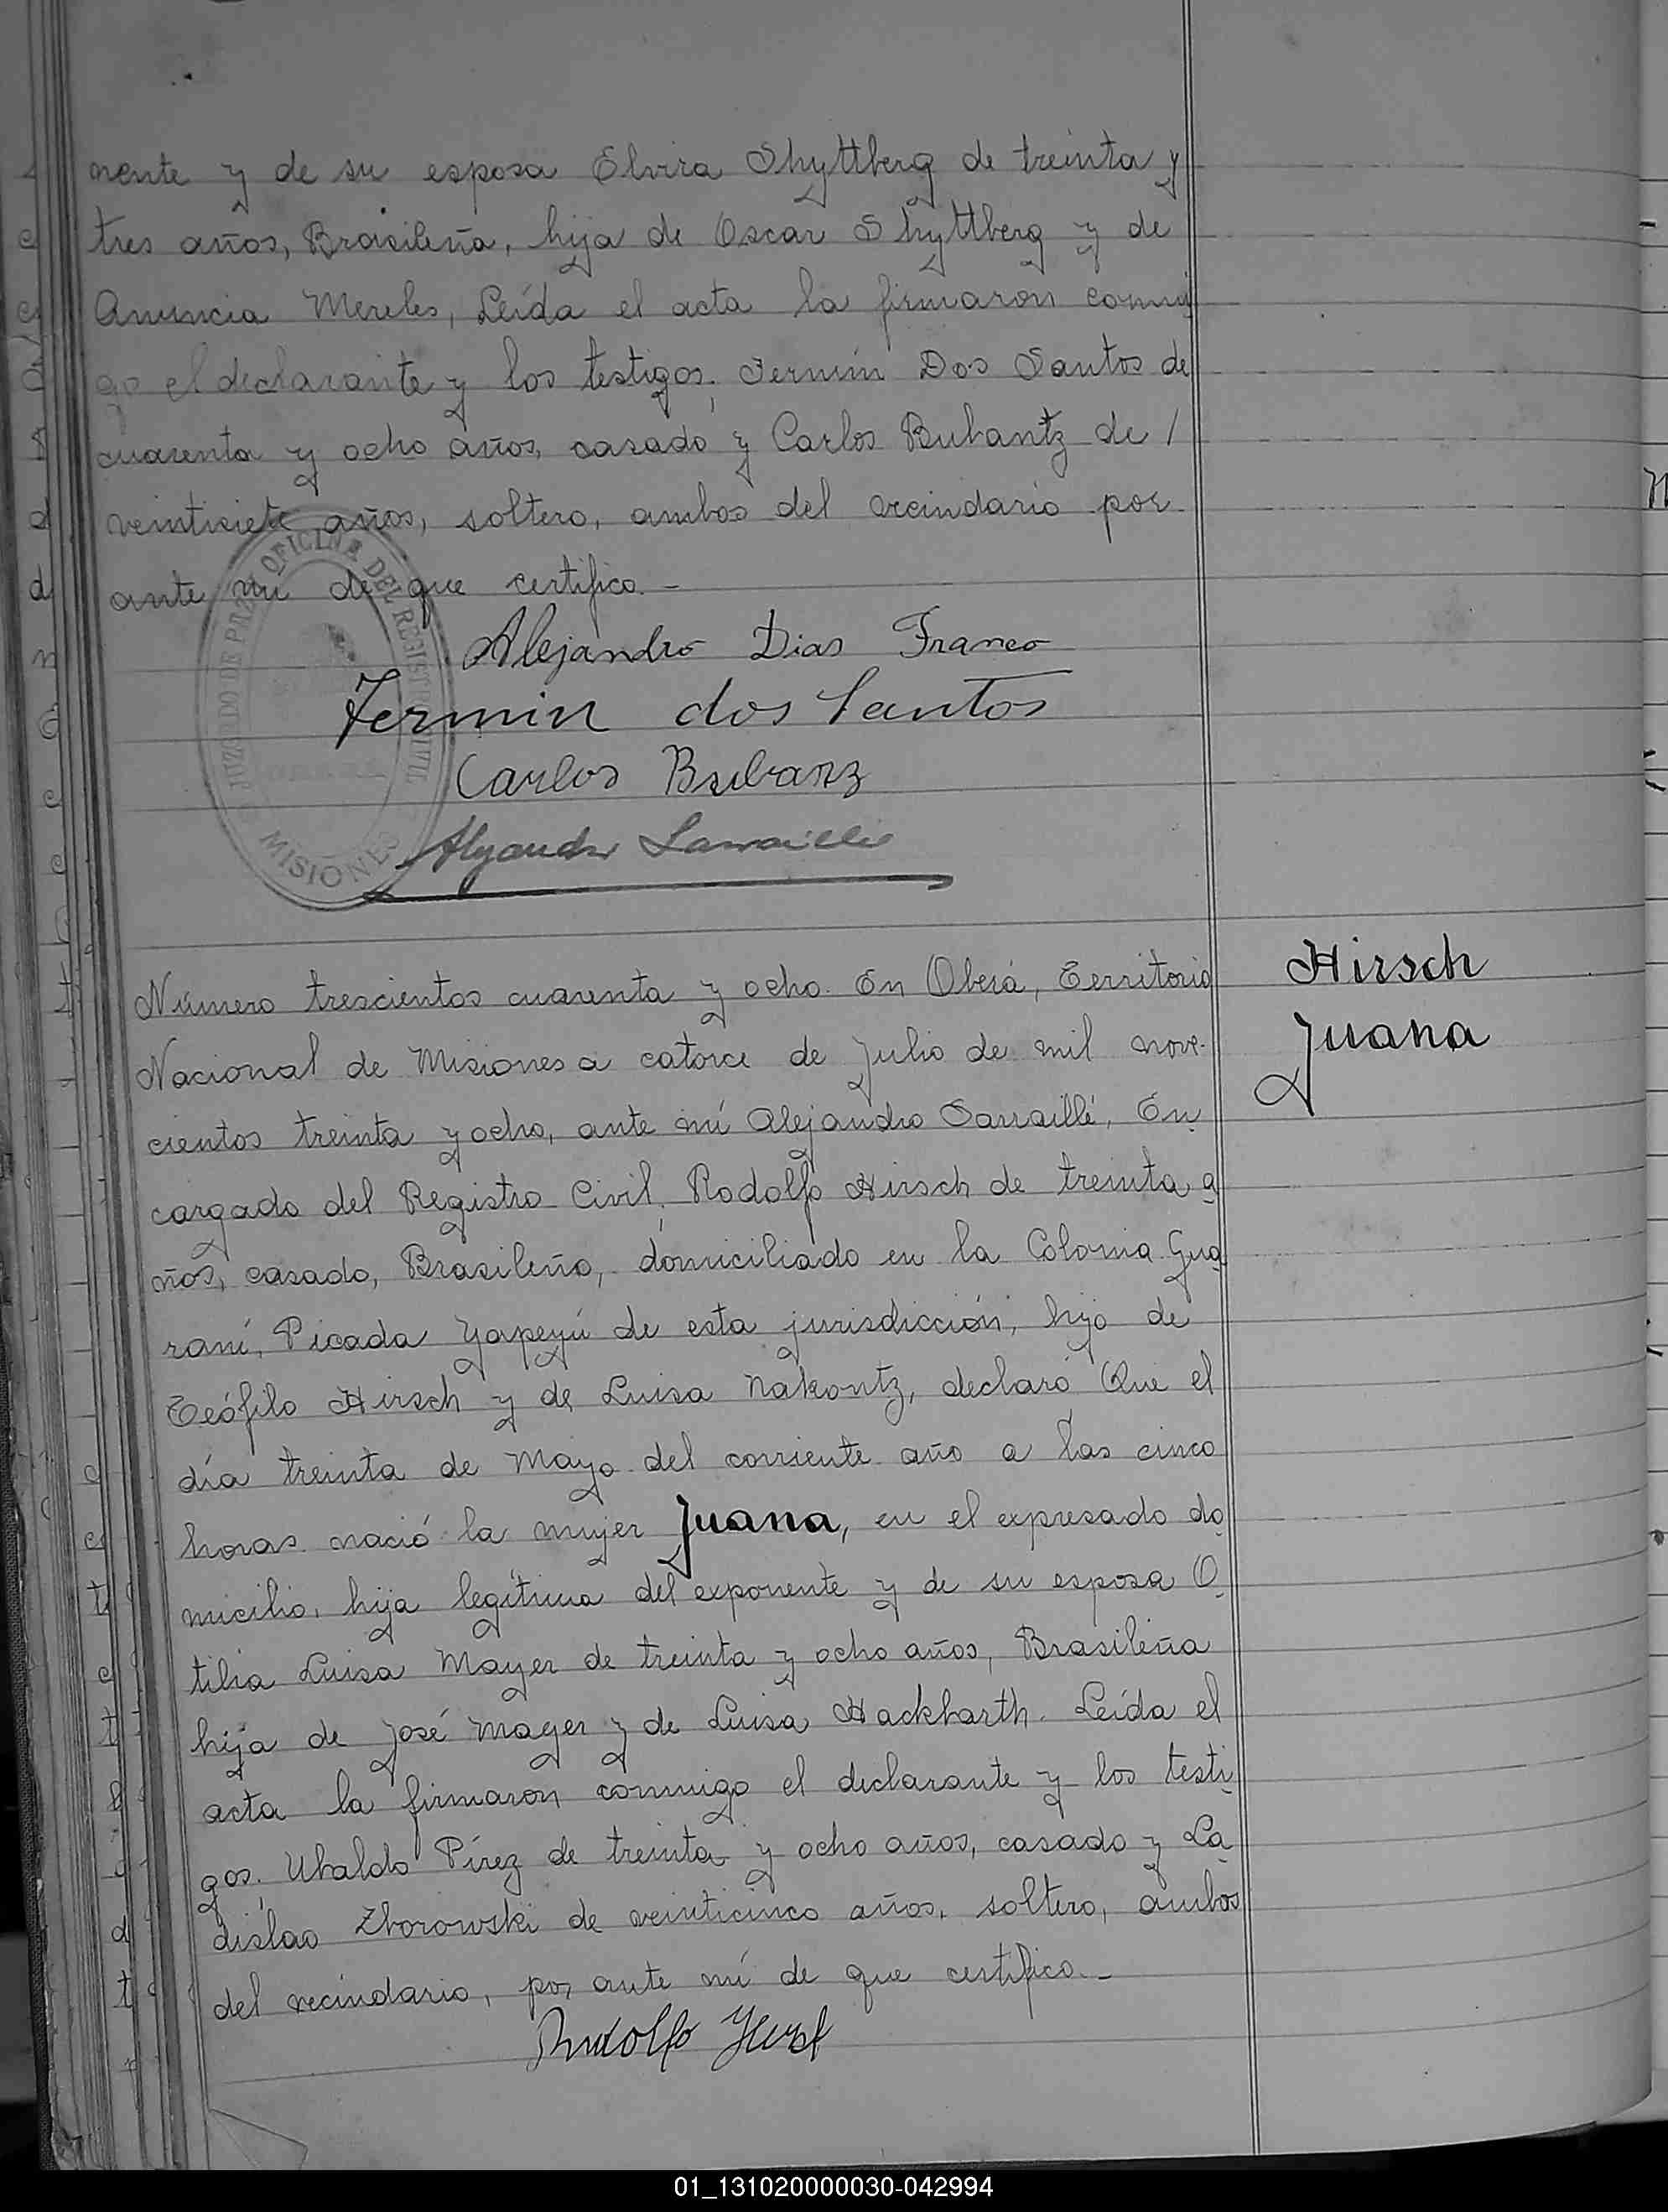 nente y de su esposa Elvira Shyttberg de treinta y
tres años, Brasileña, hija de Oscar Shyttberg y de
Anuncia Mereles, Leída el acta la firmaron conmi
go el declarante y los testigos. Fermín Dos Santos de
cuarenta y ocho años, casado y Carlos Bubantz de /
veintisiete años, soltero, ambos del vecindario por
ante mí de que certifico.—
OFICINA DEL REGISTRO CIVIL
JUZGADO DE PAZ
MISIONES
Alejandro Dias Franco
Fermin dos Santos
Carlos Bubanz
Alejandro Sarraillé
Hirsch
Juana
Número trescientos cuarenta y ocho. En Oberá, Territorio
Nacional de Misiones a catorce de Julio de mil nove-
cientos treinta y ocho, ante mí Alejandro Sarraillé, En
cargado del Registro Civil, Rodolfo Hirsch de treinta a
ños, casado, Brasileño, domiciliado en la Colonia Gua
raní, Picada Yapeyú de esta jurisdicción, hijo de
Teófilo Hirsch y de Luisa Nakontz, declaró Que el
día treinta de Mayo del corriente año a las cinco
horas nació la mujer Juana, en el expresado do
micilio, hija legítima del exponente y de su esposa O
tilia Luisa Mayer de treinta y ocho años, Brasileña
hija de José Mayer y de Luisa Hackbarth. Leída el
acta la firmaron conmigo el declarante y los testi
gos. Ubaldo Pírez de treinta y ocho años, casado y La
dislao Zborowski de veinticinco años, soltero, ambos
del vecindario, por ante mí de que certifico.—
Rudolfo Hirsch
01_131020000030-042994